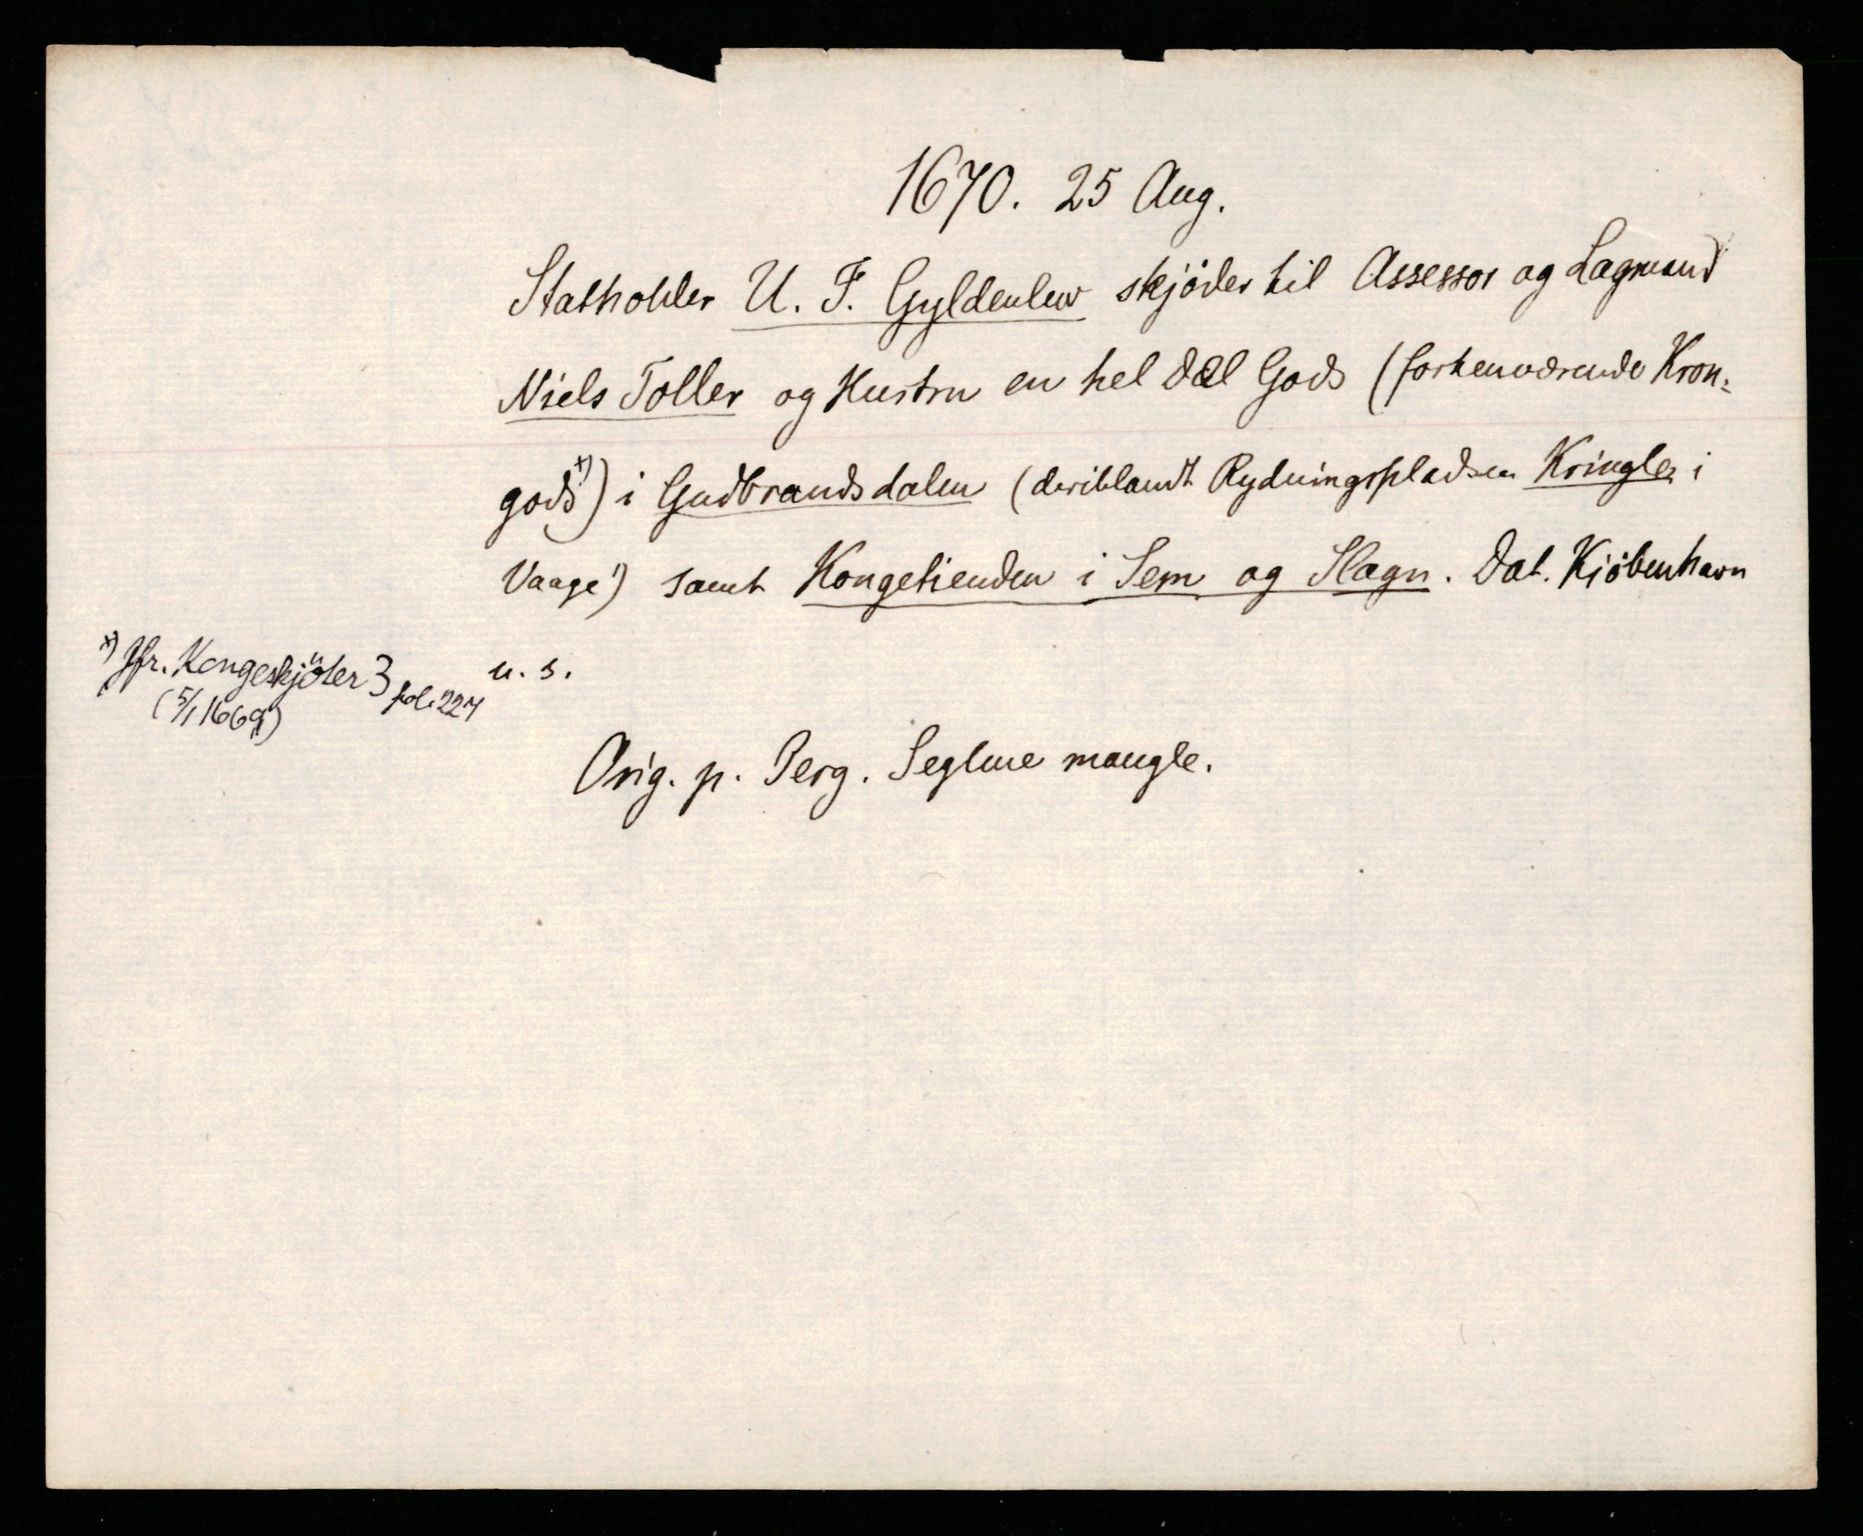 1670. 25 Aug.
Statholder U. F. Gyldenlew skjöder til Assessor og Lagmand
Niels Toller og Hustru en hel Del Gods (forhenværende Kron-
gods x)) i Gudbrandsdalen (deriblandt Rydningspladsen Kringler i
Vaage) samt Kongetienden i Sem og Slagn. Dat. Kjöbenhavn
u. s.
x) Jfr. Kongeskjöter 3 fol. 227
(5/1 1669)
Orig. p. Perg. Seglene mangle.